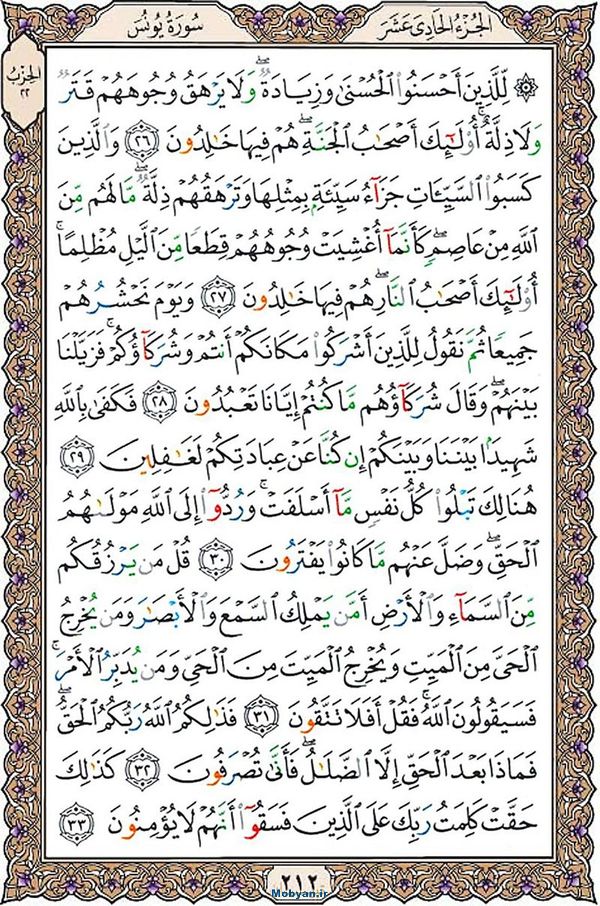 الجزء الحادي عشر
سورة يونس
الحزب
٢٢
۞ لِّلَّذِينَ أَحْسَنُوا۟ الْحُسْنَىٰ وَزِيَادَةٌ ۖ وَلَا يَرْهَقُ وُجُوهَهُمْ قَتَرٌ
وَلَا ذِلَّةٌ ۚ أُو۟لَـٰٓئِكَ أَصْحَابُ الْجَنَّةِ ۖ هُمْ فِيهَا خَالِدُونَ ﴿٢٦﴾ وَالَّذِينَ
كَسَبُوا۟ السَّيِّئَاتِ جَزَآءُ سَيِّئَةٍ بِمِثْلِهَا وَتَرْهَقُهُمْ ذِلَّةٌ ۖ مَّا لَهُم مِّنَ
اللَّهِ مِنْ عَاصِمٍ ۖ كَأَنَّمَآ أُغْشِيَتْ وُجُوهُهُمْ قِطَعًا مِّنَ الَّيْلِ مُظْلِمًا ۚ
أُو۟لَـٰٓئِكَ أَصْحَابُ النَّارِ ۖ هُمْ فِيهَا خَالِدُونَ ﴿٢٧﴾ وَيَوْمَ نَحْشُرُهُمْ
جَمِيعًا ثُمَّ نَقُولُ لِلَّذِينَ أَشْرَكُوا۟ مَكَانَكُمْ أَنتُمْ وَشُرَكَآؤُكُمْ ۚ فَزَيَّلْنَا
بَيْنَهُمْ ۖ وَقَالَ شُرَكَآؤُهُم مَّا كُنتُمْ إِيَّانَا تَعْبُدُونَ ﴿٢٨﴾ فَكَفَىٰ بِاللَّهِ
شَهِيدًا بَيْنَنَا وَبَيْنَكُمْ إِن كُنَّا عَنْ عِبَادَتِكُمْ لَغَافِلِينَ ﴿٢٩﴾
هُنَالِكَ تَبْلُوا۟ كُلُّ نَفْسٍ مَّآ أَسْلَفَتْ ۚ وَرُدُّوٓا۟ إِلَى اللَّهِ مَوْلَىٰهُمُ
الْحَقِّ ۖ وَضَلَّ عَنْهُم مَّا كَانُوا۟ يَفْتَرُونَ ﴿٣٠﴾ قُلْ مَن يَرْزُقُكُم
مِّنَ السَّمَآءِ وَالْأَرْضِ أَمَّن يَمْلِكُ السَّمْعَ وَالْأَبْصَارَ وَمَن يُخْرِجُ
الْحَيَّ مِنَ الْمَيِّتِ وَيُخْرِجُ الْمَيِّتَ مِنَ الْحَيِّ وَمَن يُدَبِّرُ الْأَمْرَ ۚ
فَسَيَقُولُونَ اللَّهُ ۚ فَقُلْ أَفَلَا تَتَّقُونَ ﴿٣١﴾ فَذَٰلِكُمُ اللَّهُ رَبُّكُمُ الْحَقُّ ۖ
فَمَاذَا بَعْدَ الْحَقِّ إِلَّا الضَّلَـٰلُ ۖ فَأَنَّىٰ تُصْرَفُونَ ﴿٣٢﴾ كَذَٰلِكَ
حَقَّتْ كَلِمَتُ رَبِّكَ عَلَى الَّذِينَ فَسَقُوٓا۟ أَنَّهُمْ لَا يُؤْمِنُونَ ﴿٣٣﴾
٢١٢
Mobyan.ir